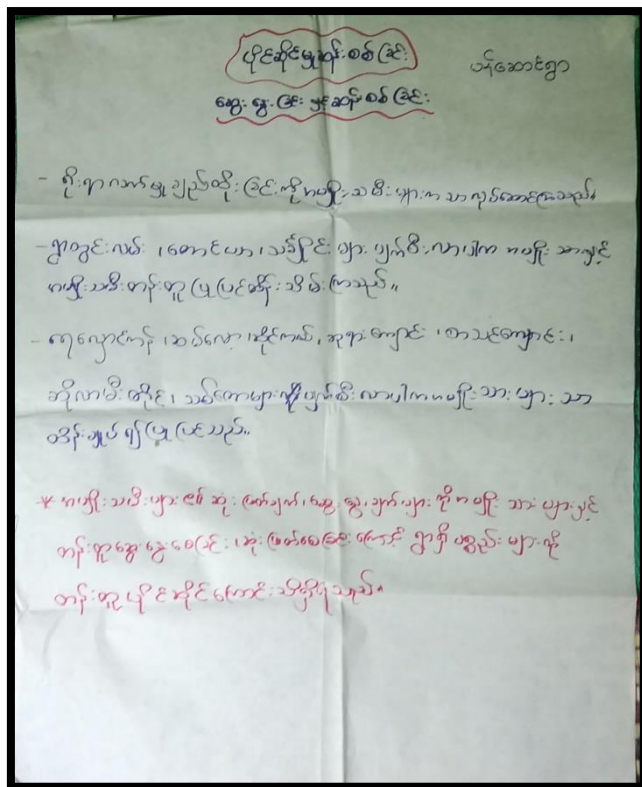 ပိုင်ဆိုင်မှုဆန်းစစ်ခြင်း
ပန်ဆောင်ရွာ
ဆွေးနွေးခြင်း နှင့်ဆန်းစစ်ခြင်း
- ရိုးရာယက်မှုချည်ထိုးခြင်းကိုအမျိုးသမီးများကသာလုပ်ဆောင်ကြသည်။
- ရွာတွင်းလမ်း၊တောင်ယာ၊သင်္ချိုင်းများပျက်စီးလာပါကအမျိုးသားနှင့်
အမျိုးသမီးတန်းတူပြုပြင်ထိန်းသိမ်းကြသည်။
- ရေလှောင်ကန်၊ဆပ်လော၊ဆိုင်ကယ်၊ဘုရားကျောင်း၊စာသင်ကျောင်း၊
ဆိုလာမီးတိုင်၊သစ်တောများပျက်စီးလာပါကအမျိုးသားများသာ
ထိန်းချုပ်၍ပြုပြင်သည်။
* အမျိုးသမီးများ၏ဆုံးဖြတ်ချက်၊ဆွေးနွေးချက်များကိုအမျိုးသားများနှင့်
တန်းတူဆွေးနွေးစေခြင်း၊ဆုံးဖြတ်စေခြင်းကြောင့်ရွာရှိပစ္စည်းများကို
တန်းတူပိုင်ဆိုင်ကြောင်းသိရှိရသည်။